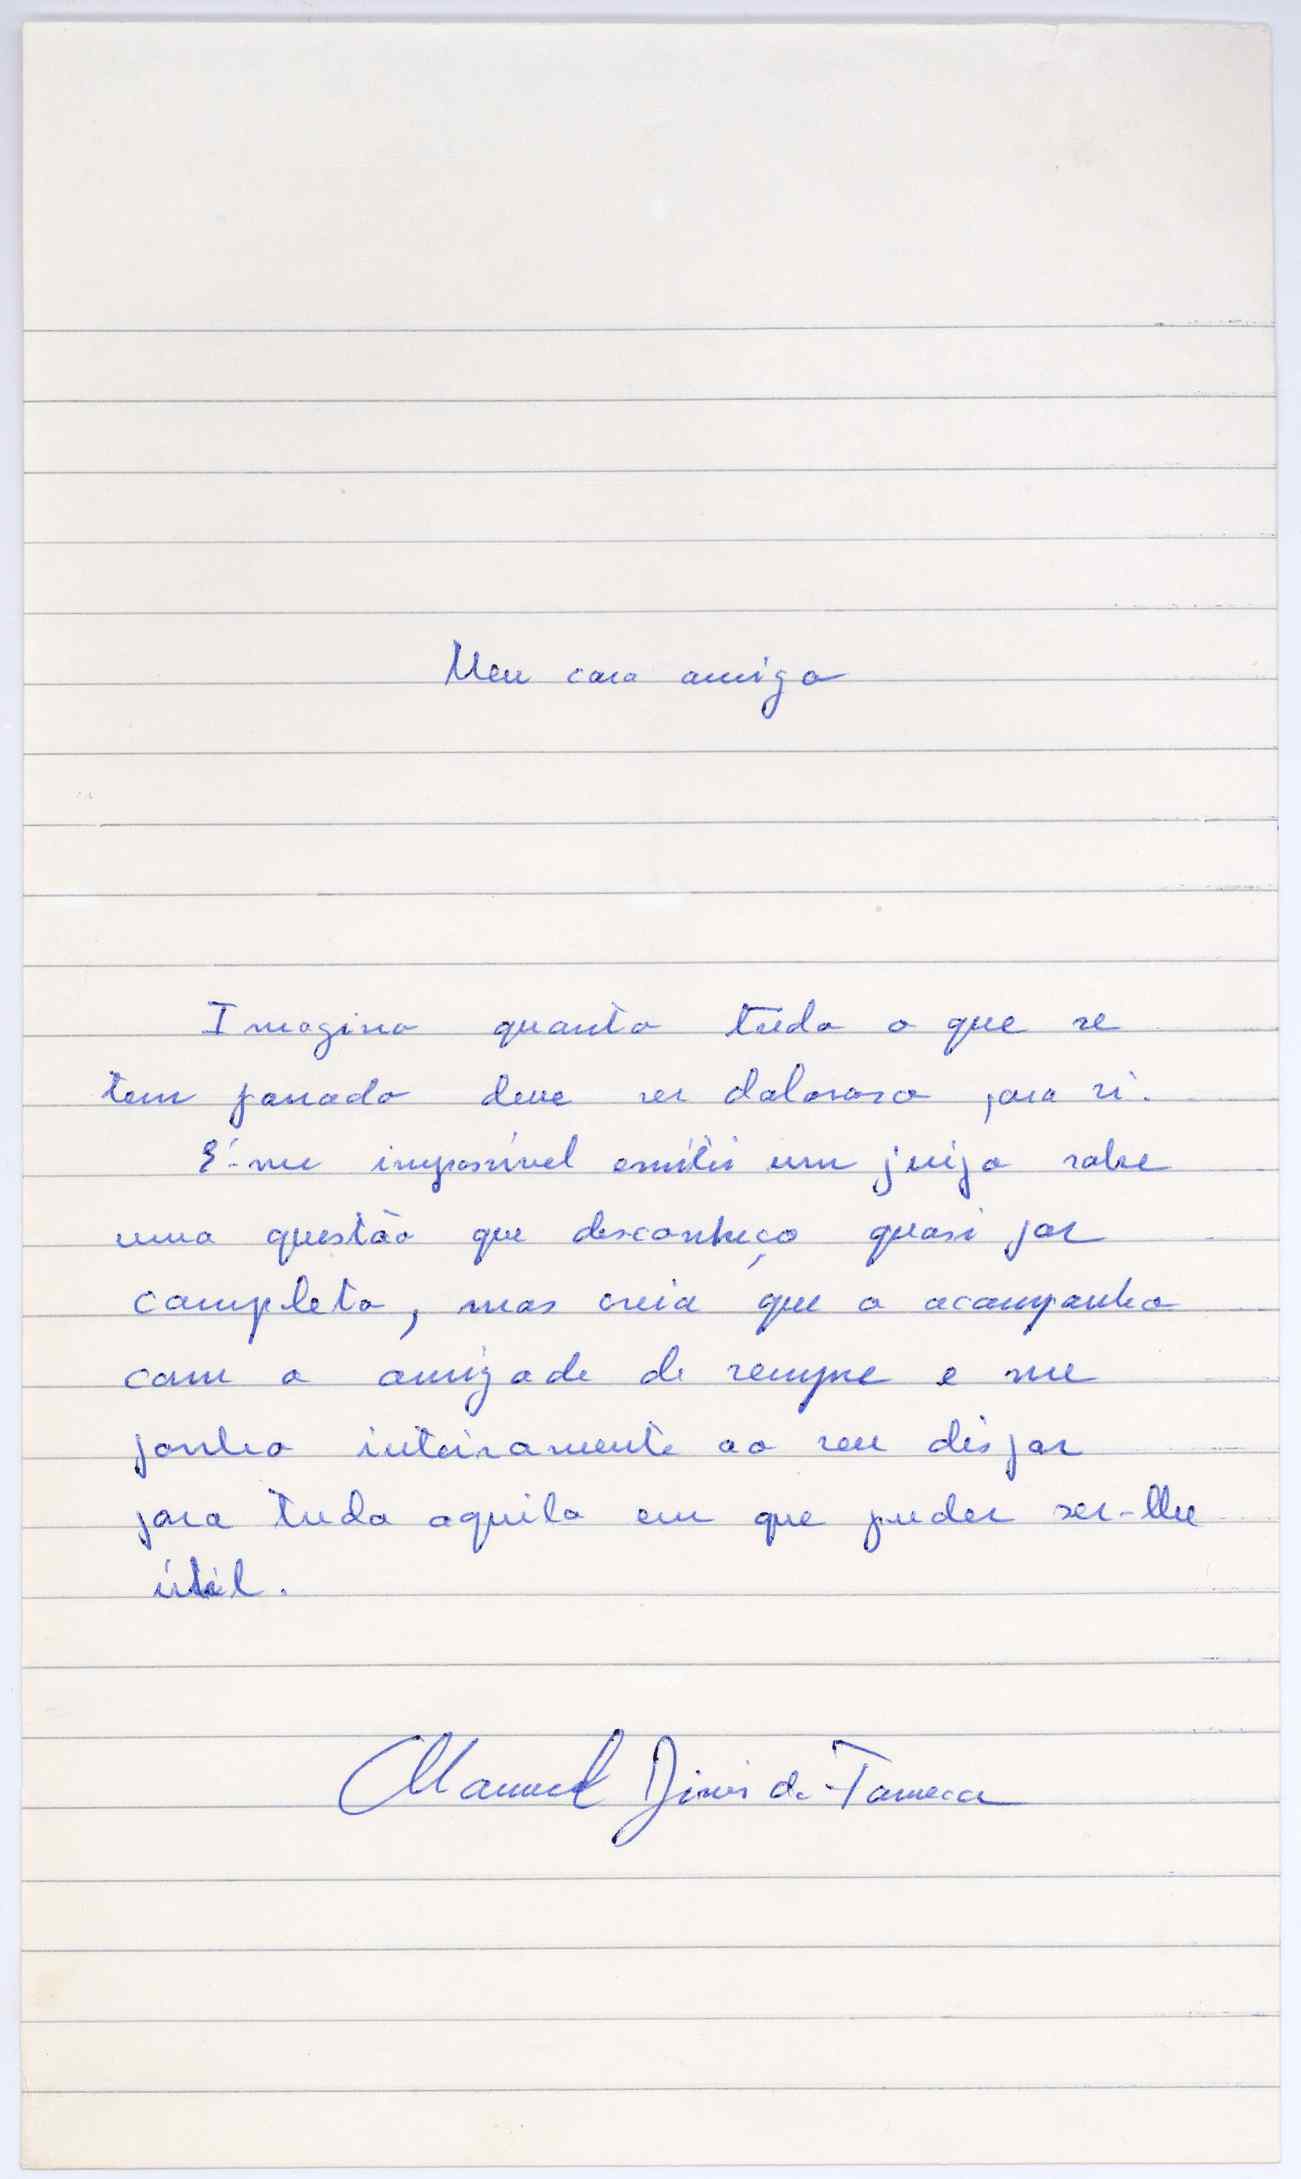 Meu caro amigo
Imagino quanto tudo o que se
tem passado deve ser doloroso para si.
É-me impossível emitir um juizo sobre
uma questão que desconheço quasi por
completo, mas creia que o acompanho
com a amizade de sempre e me
ponho inteiramente ao seu dispor
para tudo aquilo em que puder ser-lhe
útil.
Manuel Dinis da Fonseca